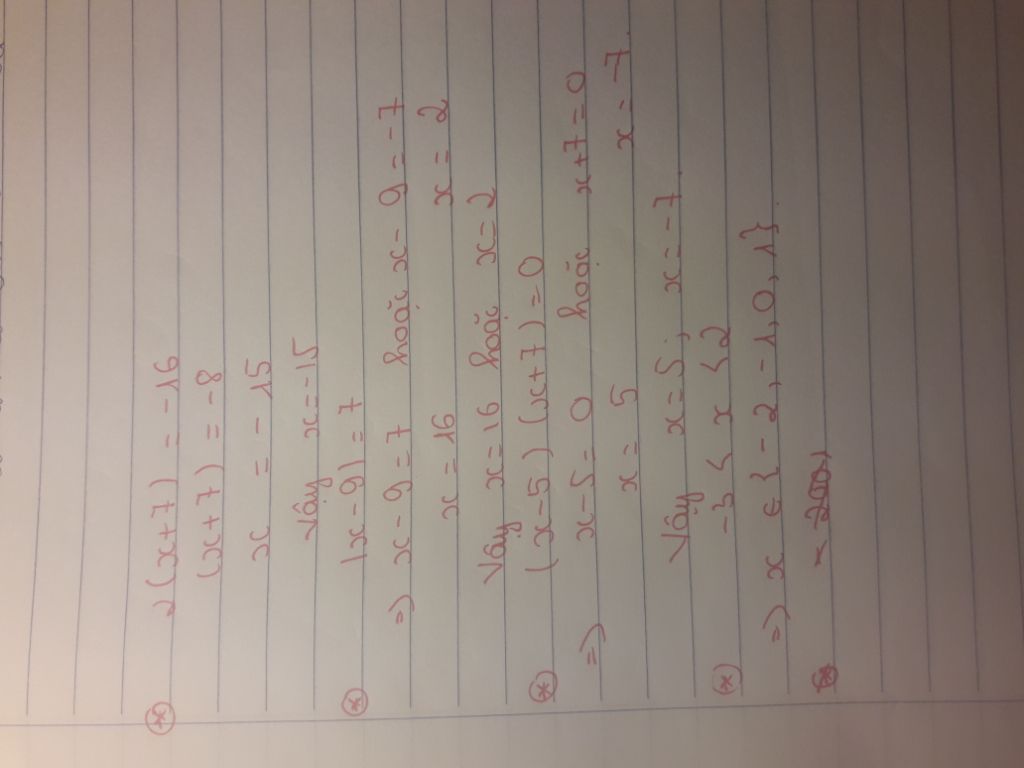 (*) 2(x+7) = -16
(x+7) = -8
x = -15
Vậy x=-15
(*) |x-9|=7
=> x-9=7 hoặc x-9=-7
x=16 x=2
Vậy x=16 hoặc x=2
(*) (x-5)(x+7)=0
=> x-5=0 hoặc x+7=0
x=5 x=-7.
Vậy x=5; x=-7.
(*) -3<x<2
=> x ∈ {-2,-1,0,1}.